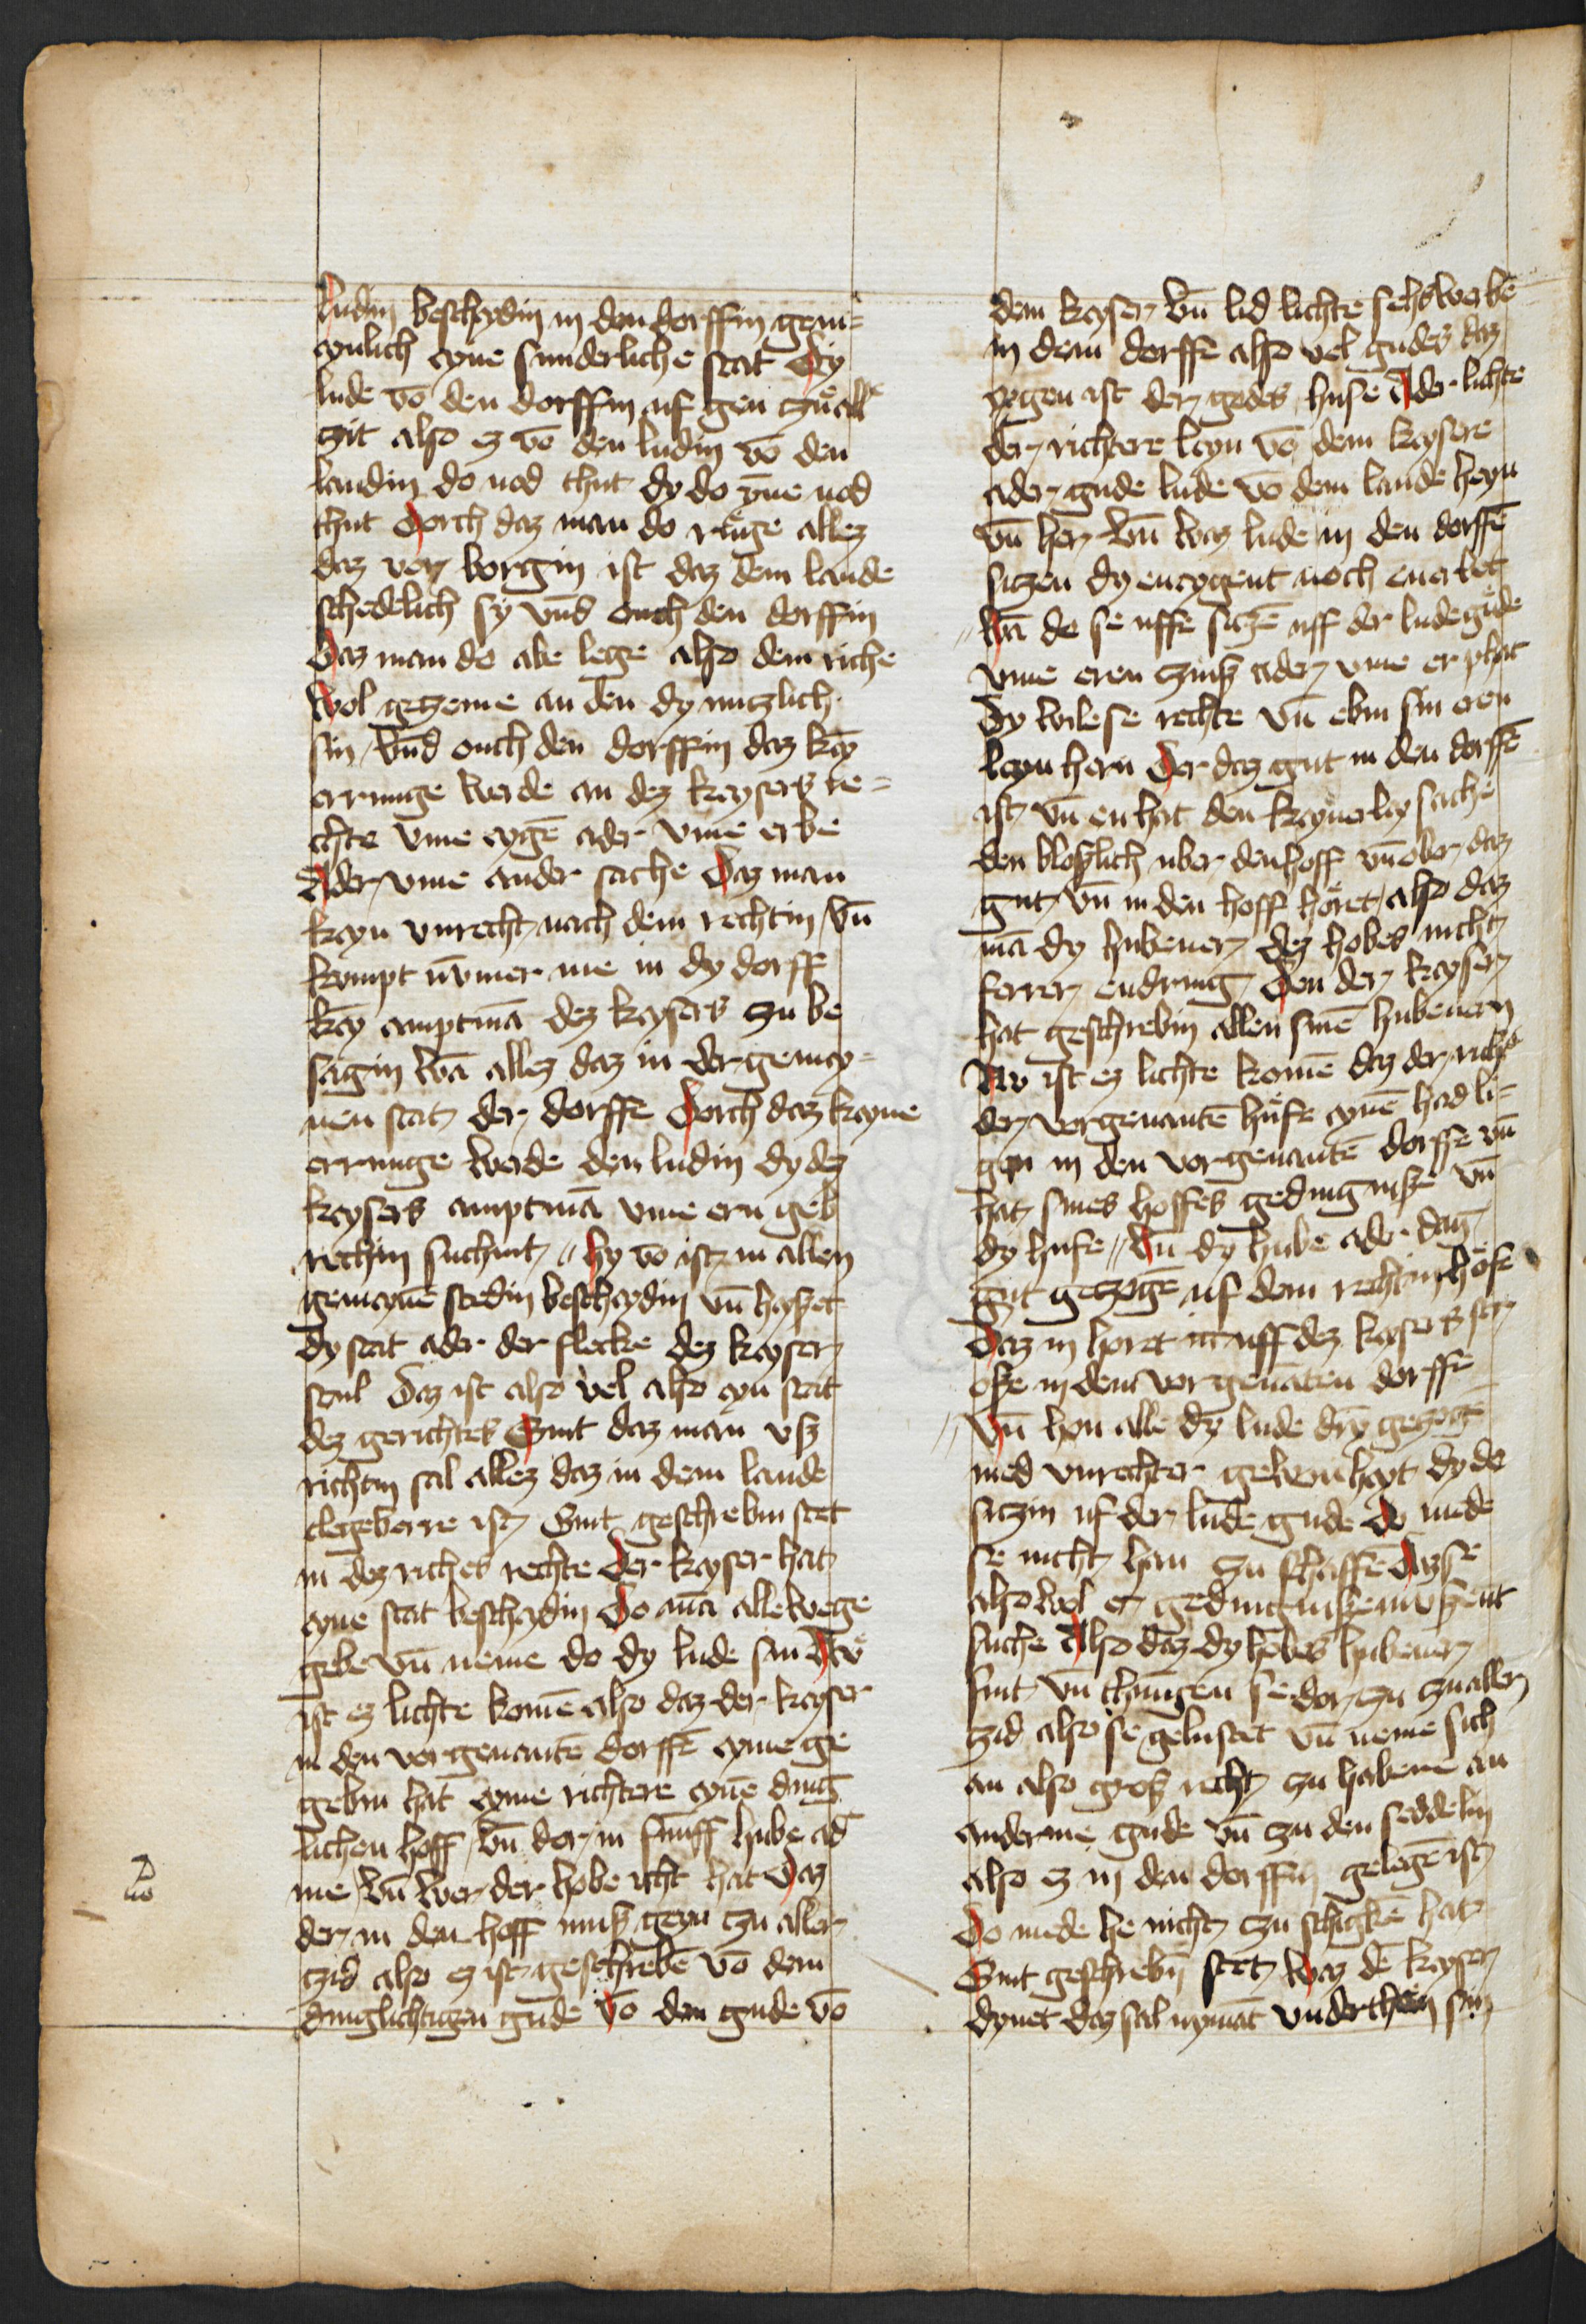 ludin bescheydin in den dorffin gem=
eynlich eyne sunderliche stat Dy
lude vō den dorffin uf gen zcu alle
zit also ez vō den ludin vō den
landin do nod thut dy do yne nod
thut Dorch daz man do ruge allez
daz vor borgin ist daz dem lande
schedelich sy vnd ouch den dorffin
Daz man do abe lege also dem riche
wol getzeme an den dy nutzlich
sin vnd ouch den dorffin daz key
errunge werde an dez keysers re=
chte vme eygē ader vme erbe
Ader vme ander sache Daz man
keyn vnrecht nach dem rechtin vn̄
kumpt nv̄mer me in dy dorff
key amptmā dez keysers zu be
sagin wā allez daz in der gemey=
nen stat der dorffe Dorch daz keyne
errunge werde den ludin dy dez
keysers amptmā vme ern geb
rechin suchint // hy vō ist in allen
gemeynē stedin bescheydin vn̄ heyszet
dy stat ader der flecke dez keyser
stul Daz ist also vel also eyn stat
dez gerichtes Sint daz man vsz
richtin sal allez daz in dem lande
clegeberre ist Sint geschrebin stet
in dez riches rechte Der keyser hat
eyne stat bescheydin Do mā allewege
gebe vn̄ neme do dy lude sin Nv
ist ez lichte komē also daz der keyser
in den vorgenantē dorffē eyme ge
gebin hat eyme richtere eynē ding
lichen hoff vn̄ dor in funff hube ad
me vn̄ wer der hobe icht hat Daz
der in den hoff musz geyn zcu aller
zcid also ez ist geschrebē vō dem
dinglichtigen gude Vō den gude vō
dem keyser vn̄ lid lichte sehswerbē
in dem dorffe also vel gudes daz
eygen ist der godes huse Ader lichte
der richtere leyn vō dem keysere
ader gude lude vō dem lande heyn
vn̄ her vn̄ waz lude in den dorffē
sitzen dy eneygent noch enerbet
// Wā do se uffe sitzē uff der lude gude
vme eren zcinsz ader vme er phat
Dy wile se rechte vn̄ ebin sin eren
leyn hern Der daz gut in den dorffē
ist vn̄ enhat den keynerley sache
den bloszlich uber den hoff vn̄ obir daz
gut vn̄ in den hoff horet also daz
mā dy hubener dez hobes nicht
ferrer endring Den der keyser
hat geschrebin allen sinē hubenern
Nv ist ez lichte komē daz der richt
der vorgenantē hufe eynē had li=
gen in den vorgenantē dorffe vn̄
hat sines hoffes gedingnisze vn̄
dy hufe // Vn̄ dy hube ader daz
gut getzogē uf dem rechtin hofe
Daz in horet uff dez keysers str
osze in dem vorgenāten dorffe
// Vn̄ hon alle dy lude dry getzogē
med vnrechter gewonheyt dy do
sitzin uf der lude gude Do mede
se nicht han zu schaffē Daz se
also wol er gedingnisze muszent
suche Also daz dy hobes hubener
sint vn̄ thungen se dor zu zu aller
zid also se gelustet vn̄ neme sich
an also grosz recht zu habene an
anderme gude vn̄ zu den seddelin
also ez in den dorffin gelegē ist
Do mede he nicht zu schickē hat
Sint geschrebin stet Waz dē keyser
dynet daz sal nymāt vnderthen sin